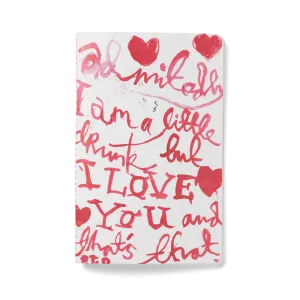 admitedly
I am a little
drunk but
I LOVE
YOU and
that's that.